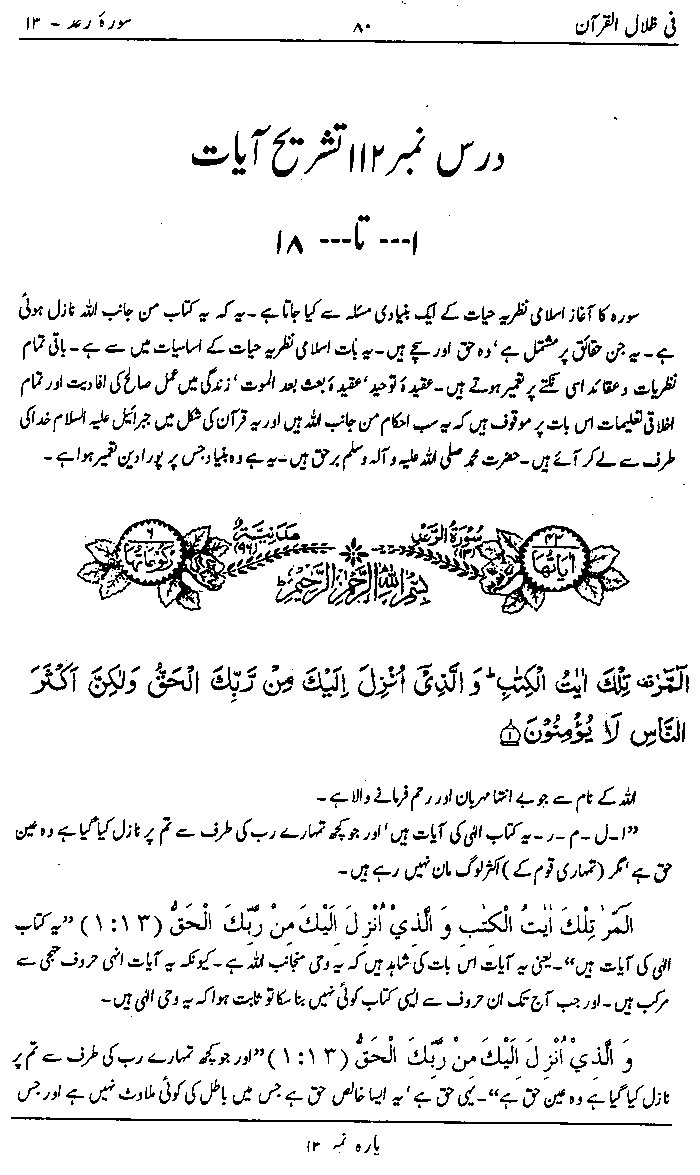 فی ظلال القرآن ۸۰ سورۂ رعد - ۱۳
درس نمبر ۱۱۲ تشریح آیات
۱--- تا --- ۱۸
سورہ کا آغاز اسلامی نظریہ حیات کے ایک بنیادی مسئلہ سے کیا جاتا ہے - یہ کہ یہ کتاب من جانب اللہ نازل ہوئی
ہے - یہ جن حقائق پر مشتمل ہے ' وہ حق اور سچے ہیں - یہ بات اسلامی نظریہ حیات کے اساسیات میں سے ہے - باقی تمام
نظریات و عقائد اسی نکتے پر تعمیر ہوتے ہیں - عقیدۂ توحید ' عقیدۂ بعث بعد الموت ' زندگی میں عمل صالح کی افادیت اور تمام
اخلاقی تعلیمات اس بات پر موقوف ہیں کہ یہ سب احکام من جانب اللہ ہیں اور یہ قرآن کی شکل میں جبرائیل علیہ السلام خدا کی
طرف سے لے کر آئے ہیں - حضرت محمد صلی اللہ علیہ و آلہ وسلم برحق ہیں - یہ ہے وہ بنیاد جس پر پورا دین تعمیر ہوا ہے -
اٰیاتہا ۴۳ سُوْرَةُ الرَّعْدِ (۱۳) مَدَنِیَّةٌ (۹۶) رکوعاتہا ۶
بِسْمِ اللّٰهِ الرَّحْمٰنِ الرَّحِیْمِ
الٓمّٓرٰ تِلْكَ اٰیٰتُ الْكِتٰبِ ؕ وَ الَّذِیْۤ اُنْزِلَ اِلَیْكَ مِنْ رَّبِّكَ الْحَقُّ وَلٰكِنَّ اَكْثَرَ
النَّاسِ لَا یُؤْمِنُوْنَ ۱
اللہ کے نام سے جو بے انتہا مہربان اور رحم فرمانے والا ہے -
”ا - ل - م - ر - یہ کتاب الٰہی کی آیات ہیں ' اور جو کچھ تمہارے رب کی طرف سے تم پر نازل کیا گیا ہے وہ عین
حق ہے ' مگر (تمہاری قوم کے) اکثر لوگ مان نہیں رہے ہیں -
الٓمّٓرٰ تِلْكَ اٰیٰتُ الْكِتٰبِ وَ الَّذِیْ اُنْزِلَ اِلَیْكَ مِنْ رَّبِّكَ الْحَقُّ (۱۳ : ۱) ”یہ کتاب
الٰہی کی آیات ہیں“ - یعنی یہ آیات اس بات کی شاہد ہیں کہ یہ وحی منجانب اللہ ہے - کیونکہ یہ آیات انہی حروف تہجی سے
مرکب ہیں - اور جب آج تک ان حروف سے ایسی کتاب کوئی نہیں بنا سکا تو ثابت ہوا کہ یہ وحی الٰہی ہیں -
وَ الَّذِیْ اُنْزِلَ اِلَیْكَ مِنْ رَّبِّكَ الْحَقُّ (۱۳ : ۱) ”اور جو کچھ تمہارے رب کی طرف سے تم پر
نازل کیا گیا ہے وہ عین حق ہے“ - یہی حق ہے ' یہ ایسا خالص حق ہے جس میں باطل کی کوئی ملاوٹ نہیں ہے اور جس
پارہ نمبر ۱۳